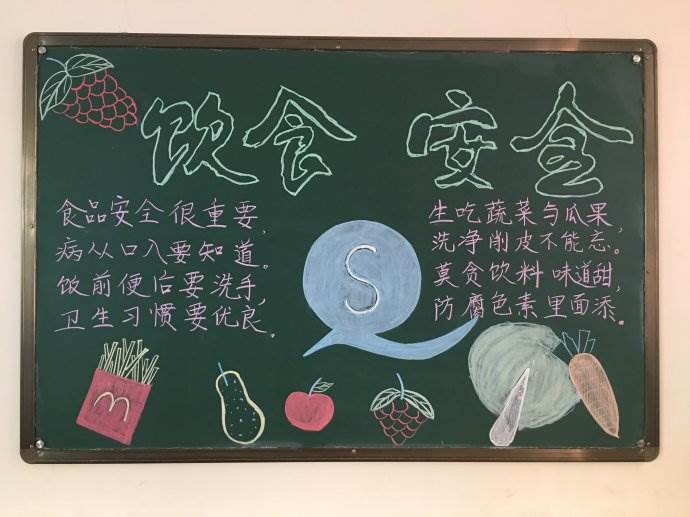 饮食 安全
食品安全很重要,
病从口入要知道。
饭前便后要洗手,
卫生习惯要优良。
S
生吃蔬菜与瓜果,
洗净削皮不能忘。
莫贪饮料味道甜,
防腐色素里面添。
M